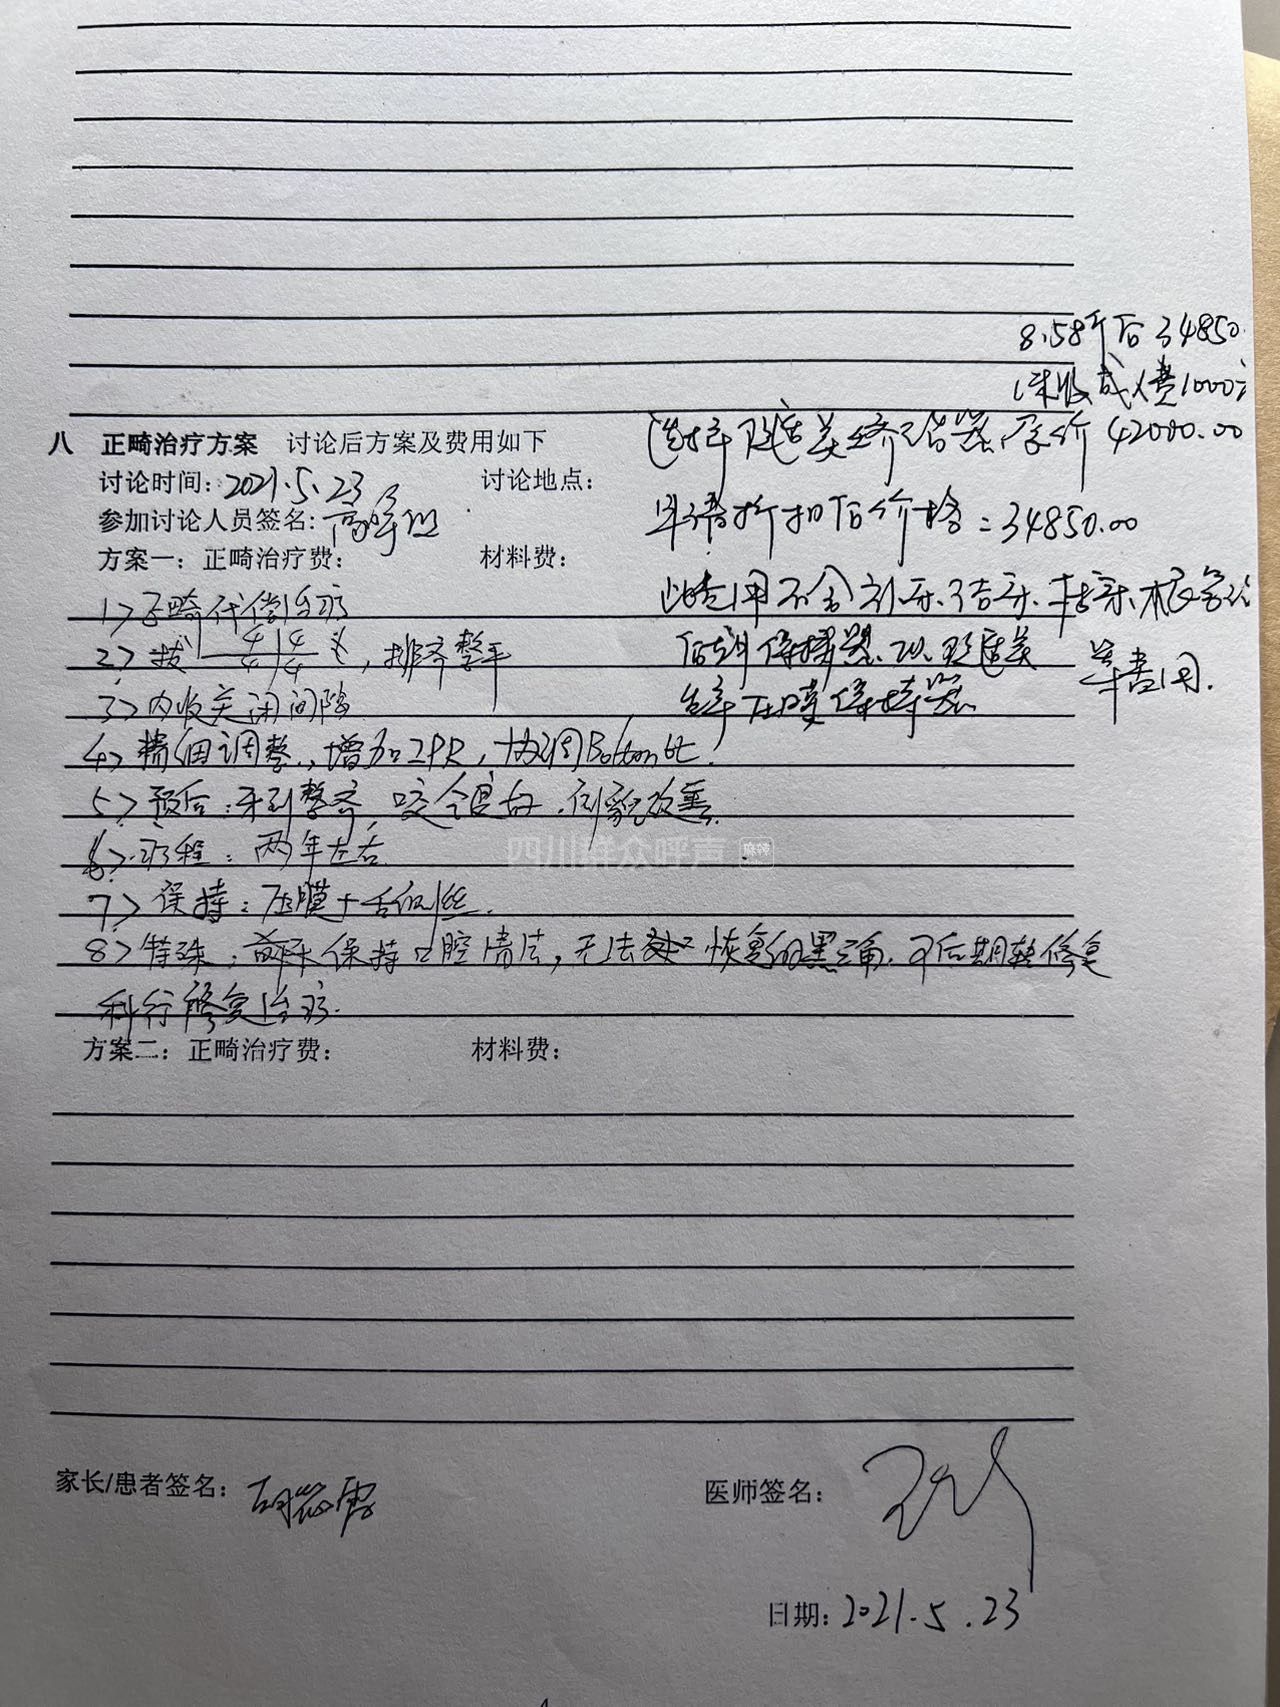 8.58折后34850.
(未收成人费1000元
八 正畸治疗方案 讨论后方案及费用如下
选择隐适美 矫治器,原价42000.00
讨论时间:2021.5.23 讨论地点:
申请折扣后价格=34850.00
参加讨论人员签名:
方案一:正畸治疗费: 材料费:
此费用不含 洁牙、拔牙、
1>正畸代偿治疗
2>拔 4|4 4|4 ,排齐整平
后期保持器, 隐适美 等费用.
3>内收关闭间隙
压膜保持器
4>精细调整,增加IPR,协调Bolton比.
5>预后:牙列整齐,咬合良好,侧貌改善.
6>疗程:两年左右
四川群众呼声 麻辣
7>保持:压膜+舌侧丝.
8>特殊: 保持口腔清洁,无法 恢复的黑三角,可后期转修复
科行修复治疗.
方案二:正畸治疗费: 材料费:
家长/患者签名: 医师签名:
日期:2021.5.23